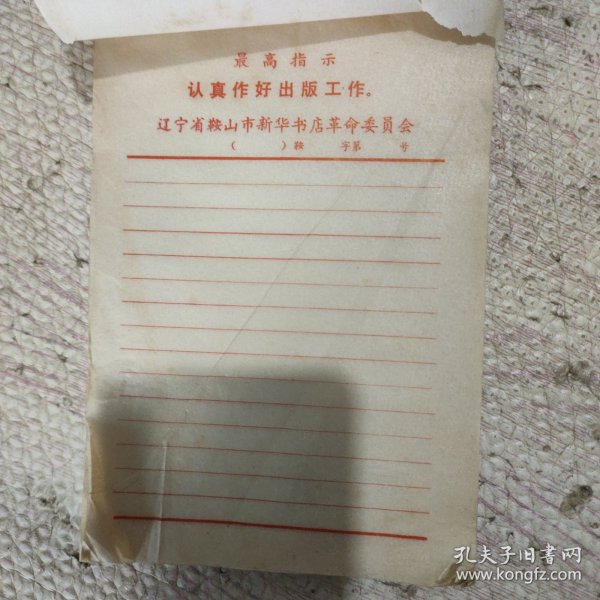 最高指示
认真作好出版工作。
辽宁省鞍山市新华书店革命委员会
（ ）鞍 字第 号
孔夫子旧书网
www.kongfz.com